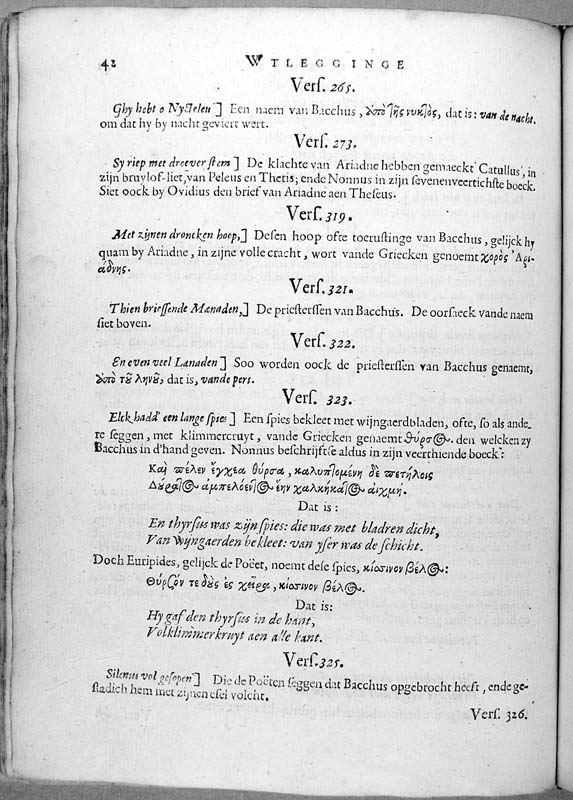 42 WTLEGGINGE
Vers. 265.
Ghy hebt o Nycteleu ] Een naem van Bacchus, ἀπὸ τῆς νυκτὸς, dat is: van de nacht.
om dat hy by nacht geviert wert.
Vers. 273.
Sy riep met droever stem ] De klachte van Ariadne hebben gemaeckt Catullus, in
zijn bruylof-liet, van Peleus en Thetis; ende Nonnus in zijn sevenenveertichste boeck.
Siet oock by Ovidius den brief van Ariadne aen Theseus.
Vers. 319.
Met zijnen droncken hoop,] Desen hoop ofte toerustinge van Bacchus, gelijck hy
quam by Ariadne, in zijne volle cracht, wort vande Griecken genoemt χορὸς Ἀρι-
άδνης.
Vers. 321.
Thien briessende Mænaden,] De priesterssen van Bacchus. De oorsaeck vande naem
siet boven.
Vers. 322.
En even veel Lænaden ] Soo worden oock de priesterssen van Bacchus genaemt,
ἀπὸ τοῦ ληνοῦ, dat is, vande pers.
Vers. 323.
Elck hadd' een lange spies ] Een spies bekleet met wijngaerdbladen, ofte, so als ande-
re seggen, met klimmercruyt, vande Griecken genaemt θύρσος. den welcken zy
Bacchus in d'hand geven. Nonnus beschrijftse aldus in zijn veerthiende boeck:
Καὶ πέλεν ἔγχεα θύρσα, καλυπτομένη δὲ πετήλοις
Δύρατος ἀμπελόεντος ἔην χαλκήκατος αἰχμή.
Dat is:
En thyrsus was zijn spies: die was met bladren dicht,
Van Wijngaerden bekleet: van yser was de schicht.
Doch Euripides, gelijck de Poët, noemt dese spies, κίσσινον βέλος:
Θύρσόν τε δοὺς ἐς χεῖρα, κίσσινον βέλος.
Dat is:
Hy gaf den thyrsus in de hant,
Vol klimmerkruyt aen alle kant.
Vers. 325.
Silenus vol gesopen ] Die de Poëten seggen dat Bacchus opgebrocht heeft, ende ge-
stadich hem met zijnen esel volcht.
Vers. 326.